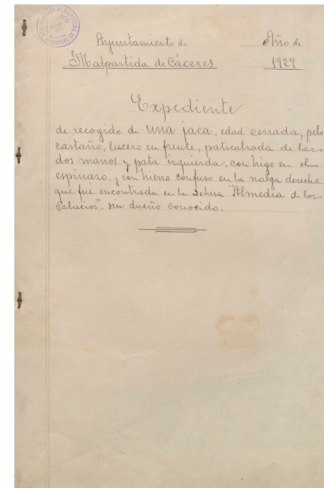 Ayuntamiento de Año de
Malpartida de Cáceres 1929
Expediente
de recogido de una jaca, edad cerrada, pelo
castaño, lucero en frente, paticalzada de las
dos manos y pata izquierda, con higo en el
espinazo, y con hierro confuso en la nalga derecha
que fue encontrada en la Dehesa "Almedia de los
Palacios", sin dueño conocido.